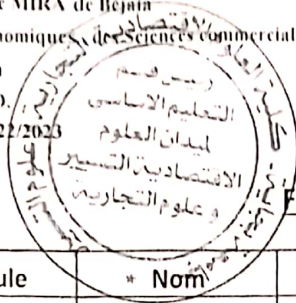 MIRA de Bejaia
nomiques, des Sciences commercial
22/2023
رئيس قسم
التعليم الأساسي
لميدان العلوم
الاقتصادية التسيير
و علوم التجارية
ule * Nom